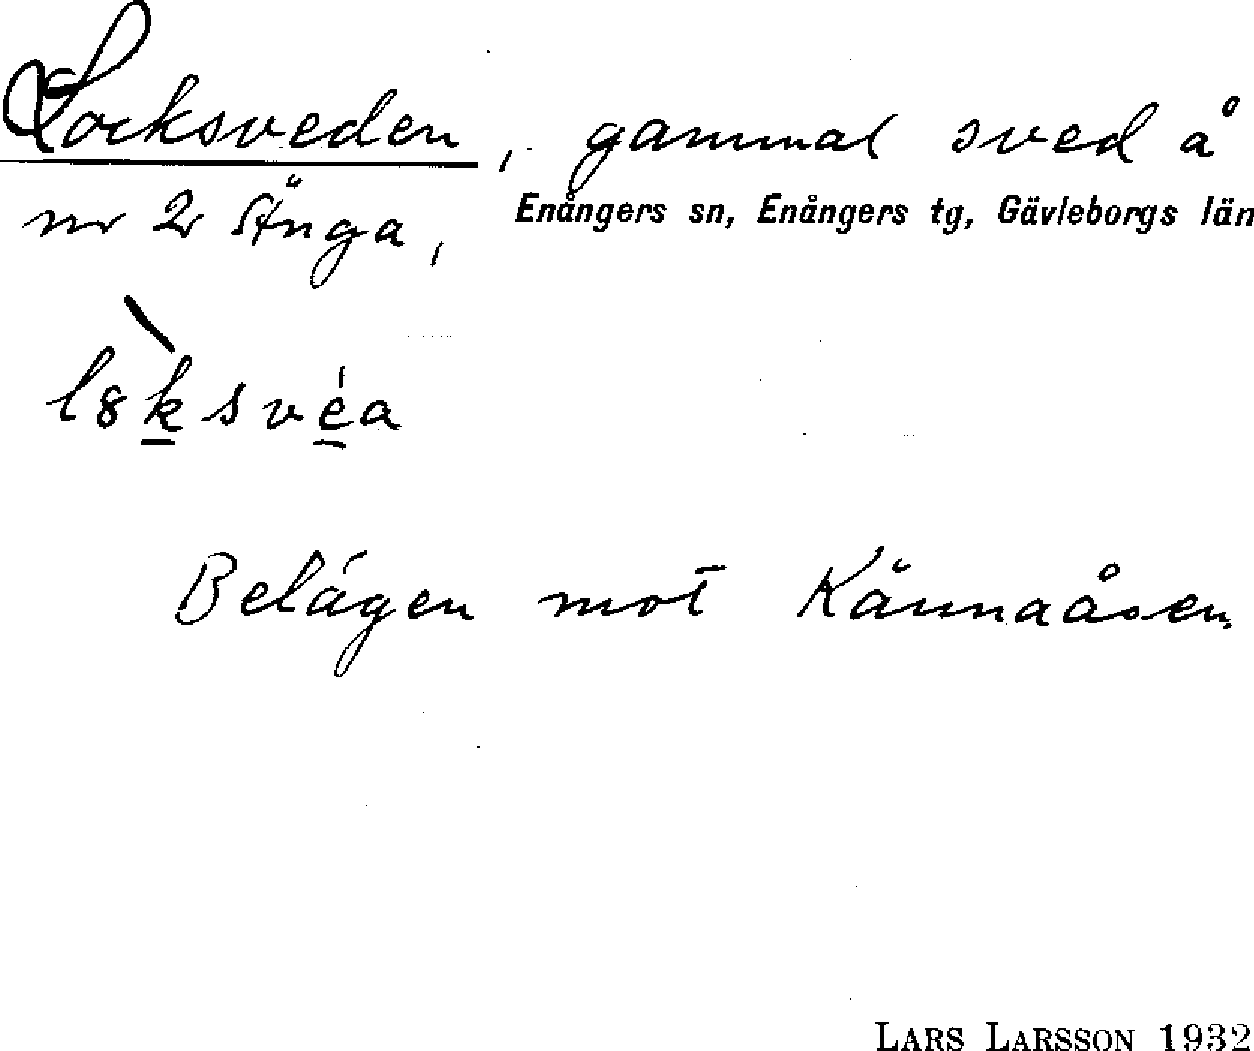 Locksveden, gammal sved å
nr 2 Änga, Enångers sn, Enångers tg, Gävleborgs län
l8ksvéa
Belägen mot Kännaåsen.
LARS LARSSON 1932